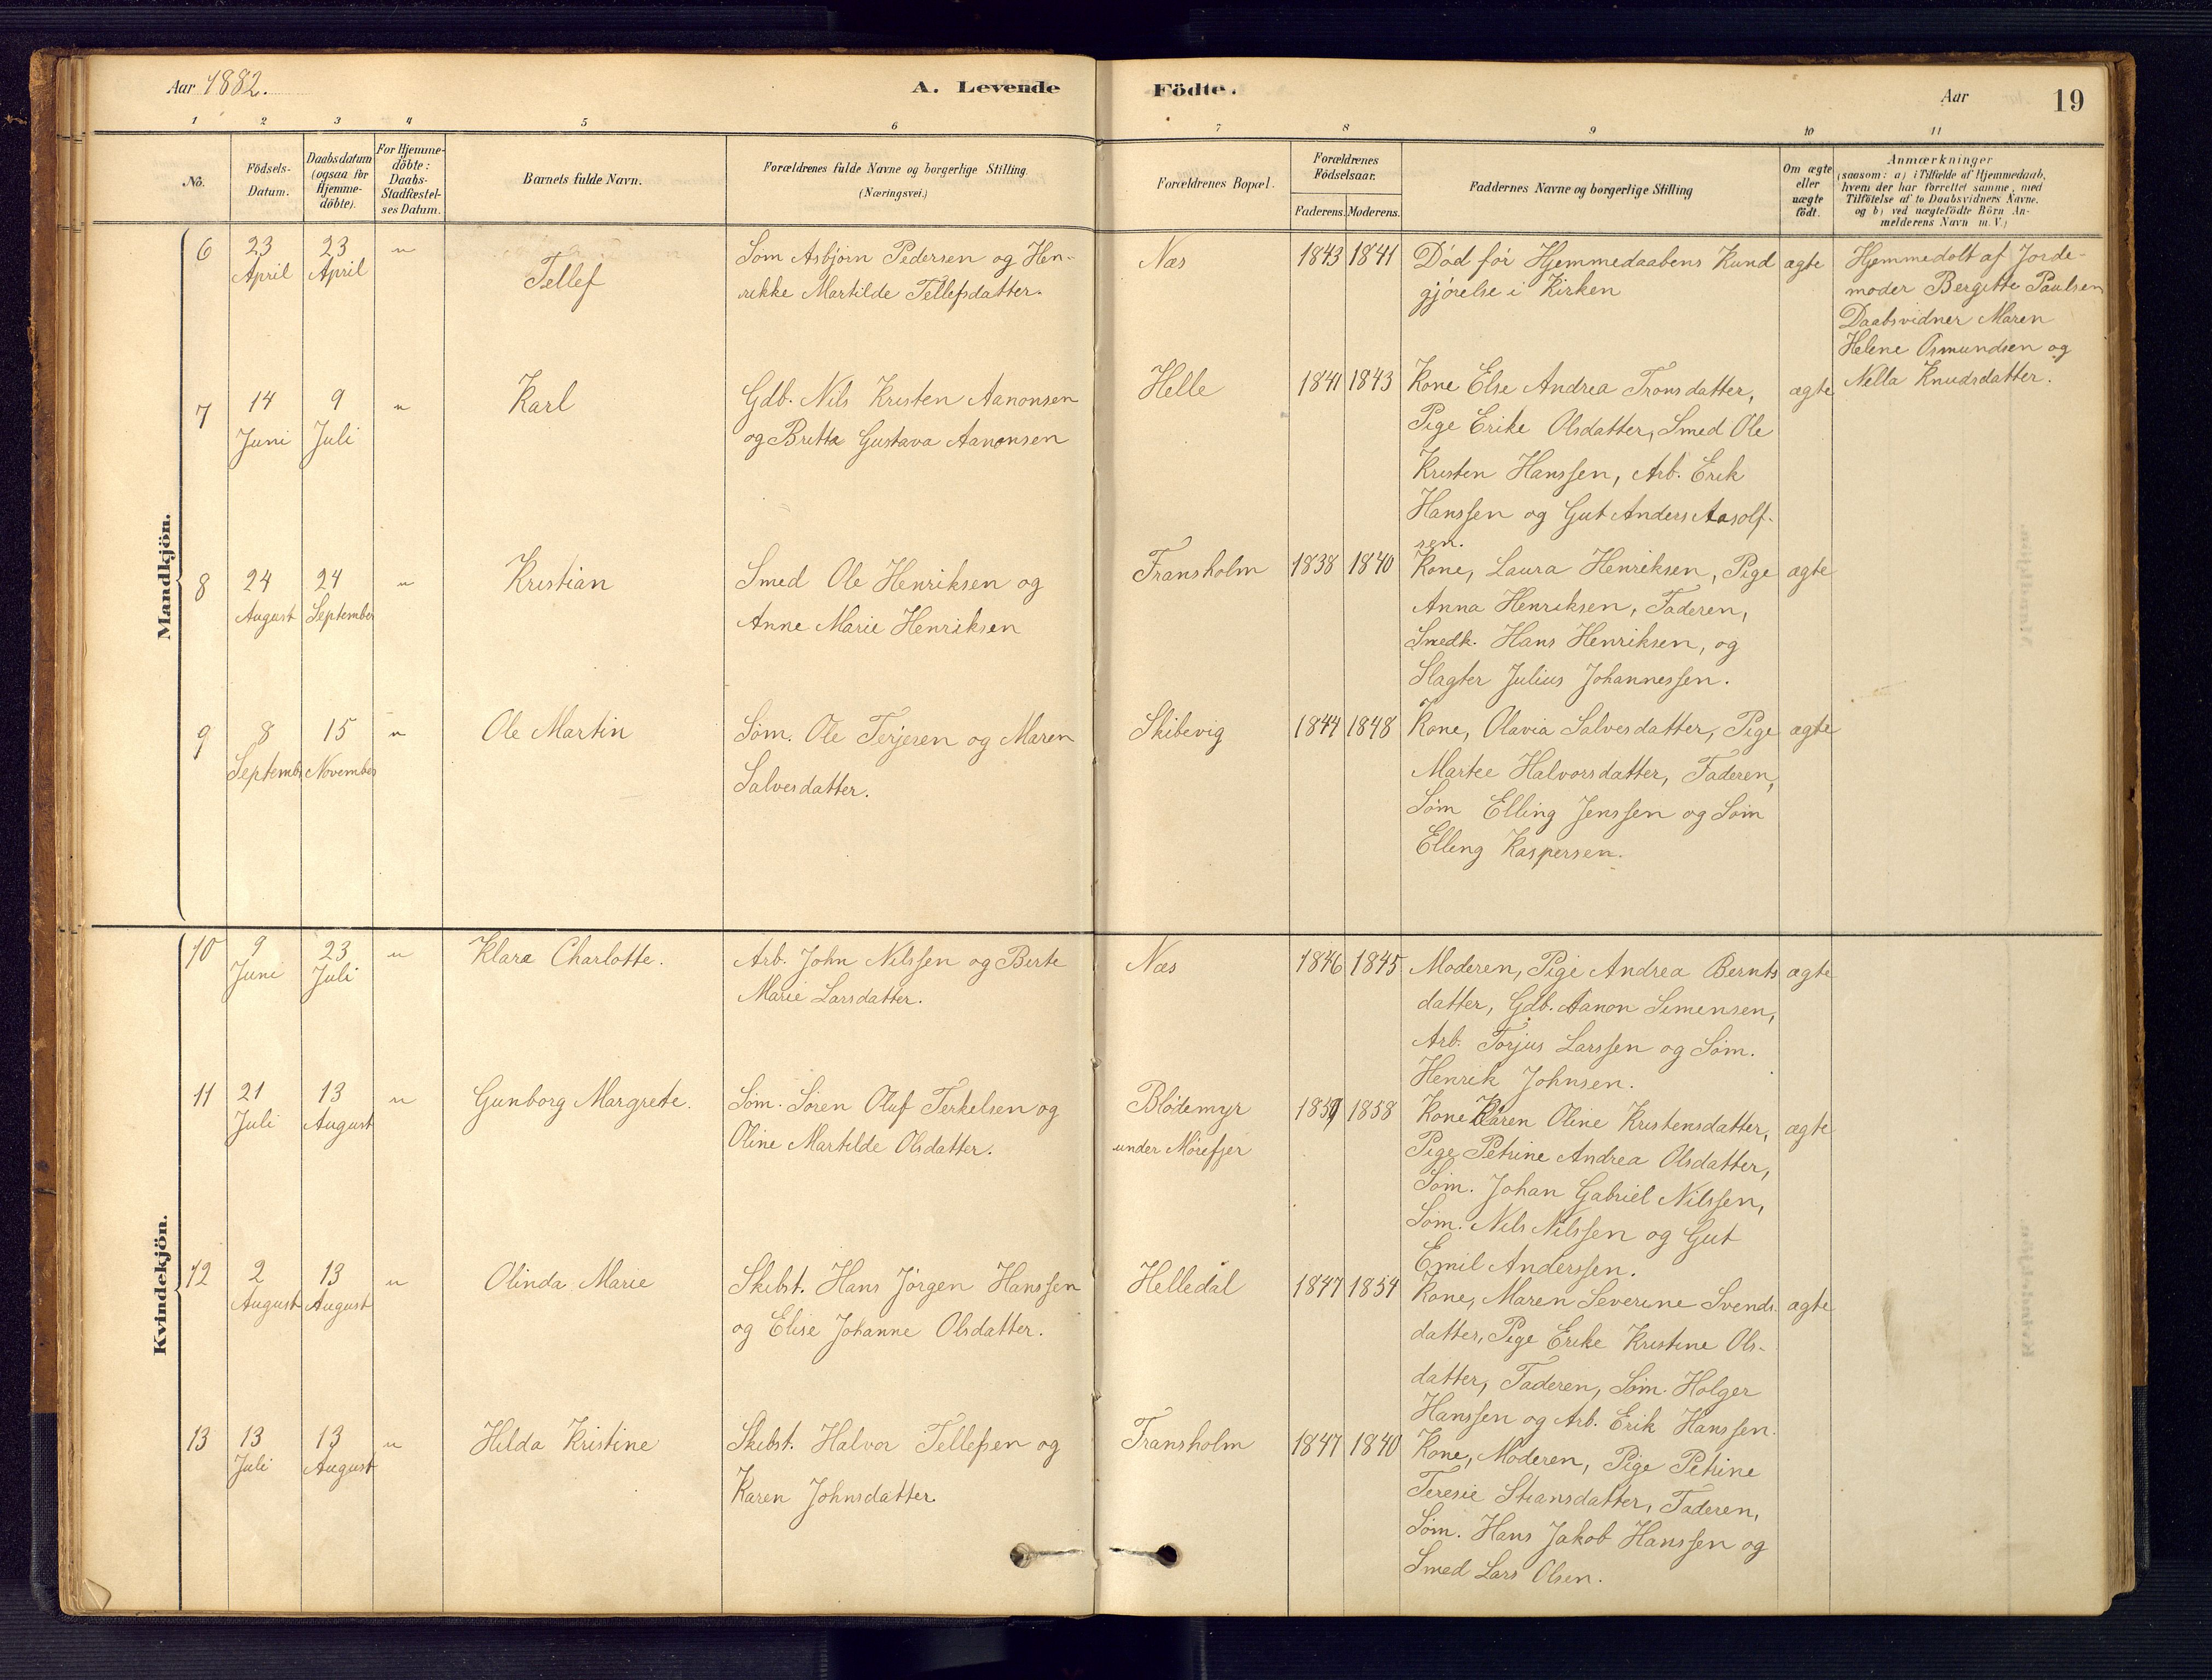 Aar 1882.
A. Levende Födte.
Aar 19
1 2 3 4 5 6 7 8 9 10 11
No.
Födsels-Datum.
Daabsdatum (ogsaa for Hjemme-döbte).
For Hjemme-döbte: Daabs-Stadfæstel-ses Datum.
Barnets fulde Navn.
Forældrenes fulde Navne og borgerlige Stilling
(Næringsvei.)
Forældrenes Bopæl.
Forældrenes Födselsaar.
Faderens. Moderens.
Faddernes Navne og borgerlige Stilling
Om ægte eller uægte født.
Anmærkninger
(saasom: a) i Tilfælde af Hjemmedaab,
hvem der har forrettet samme, med
Tilföielse af to Daabsvidners Navne.
og b) ved uægtefödte Börn An-
melderens Navn m.V.)
Mandkjön.
6 23 April 23 April " Tellef
Søm Asbjørn Pedersen og Hen-
rikke Martilde Tellefsdatter.
Næs 1843 1841
Død før Hjemmedaabens Kund
gjørelse i Kirken
ægte
Hjemmedøbt af Jorde-
moder Bergitte Paulsen
Daabsvidner Maren
Helene Osmundsen og
Nella Knudsdatter.
7 14 Juni 9 Juli " Karl
Gdb. Nils Kristen Aanonsen
og Britta Gustava Aanonsen
Helle 1841 1843
Kone Else Andrea Tronsdatter,
Pige Erike Olsdatter, Smed Ole
Kristen Hanssen, Arb. Erik
Hanssen og Gut Anders Aasolf-
sen.
ægte
8 24 August 24 September " Kristian
Smed Ole Henriksen og
Anne Marie Henriksen
Fransholm 1838 1840
Kone, Laura Henriksen, Pige
Anna Henriksen, Faderen,
Smedk. Hans Henriksen, og
Slagter Julius Johannessen.
ægte
9 8 Septemb 15 November " Ole Martin
Søm. Ole Terjesen og Maren
Salvesdatter.
Skibevig 1844 1848
Kone, Olavia Salvesdatter, Pige
Martee Halvorsdatter, Faderen,
Søm Elling Jenssen og Søm
Elleng Kaspersen.
ægte
Kvindekjön.
10 9 Juni 23 Juli " Klara Charlotte.
Arb. John Nilssen og Berte
Marie Larsdatter.
Næs 1846 1845
Moderen, Pige Andrea Bernts
datter, Gdb. Aanon Simensen,
Arb. Torjus Larssen og Søm.
Henrik Johnsen.
ægte
11 21 Juli 13 August " Gunborg Margrete.
Søm. Søren Oluf Terkelsen og
Oline Martilde Olsdatter.
Blødemyr
under Mørefjer
1859 1858
Kone Karen Oline Kristensdatter,
Pige Petrine Andrea Olsdatter,
Søm. Johan Gabriel Nilssen,
Søm. Nils Nilssen og Gut
Emil Anderssen.
ægte
12 2 August 13 August " Olinda Marie
Skibst. Hans Jørgen Hanssen
og Elise Johanne Olsdatter.
Helledal 1847 1854
Kone, Maren Severine Svends
datter, Pige Erike Kristine Ols-
datter, Faderen, Søm. Holger
Hanssen og Arb. Erik Hanssen.
ægte
13 13 Juli 13 August " Hilda Kristine
Skibst. Halvor Tellefsen og
Karen Johnsdatter.
Fransholm 1847 1840
Kone, Moderen, Pige Petrine
Teresie Stiansdatter, Faderen,
Søm. Hans Jakob Hanssen og
Smed Lars Olsen.